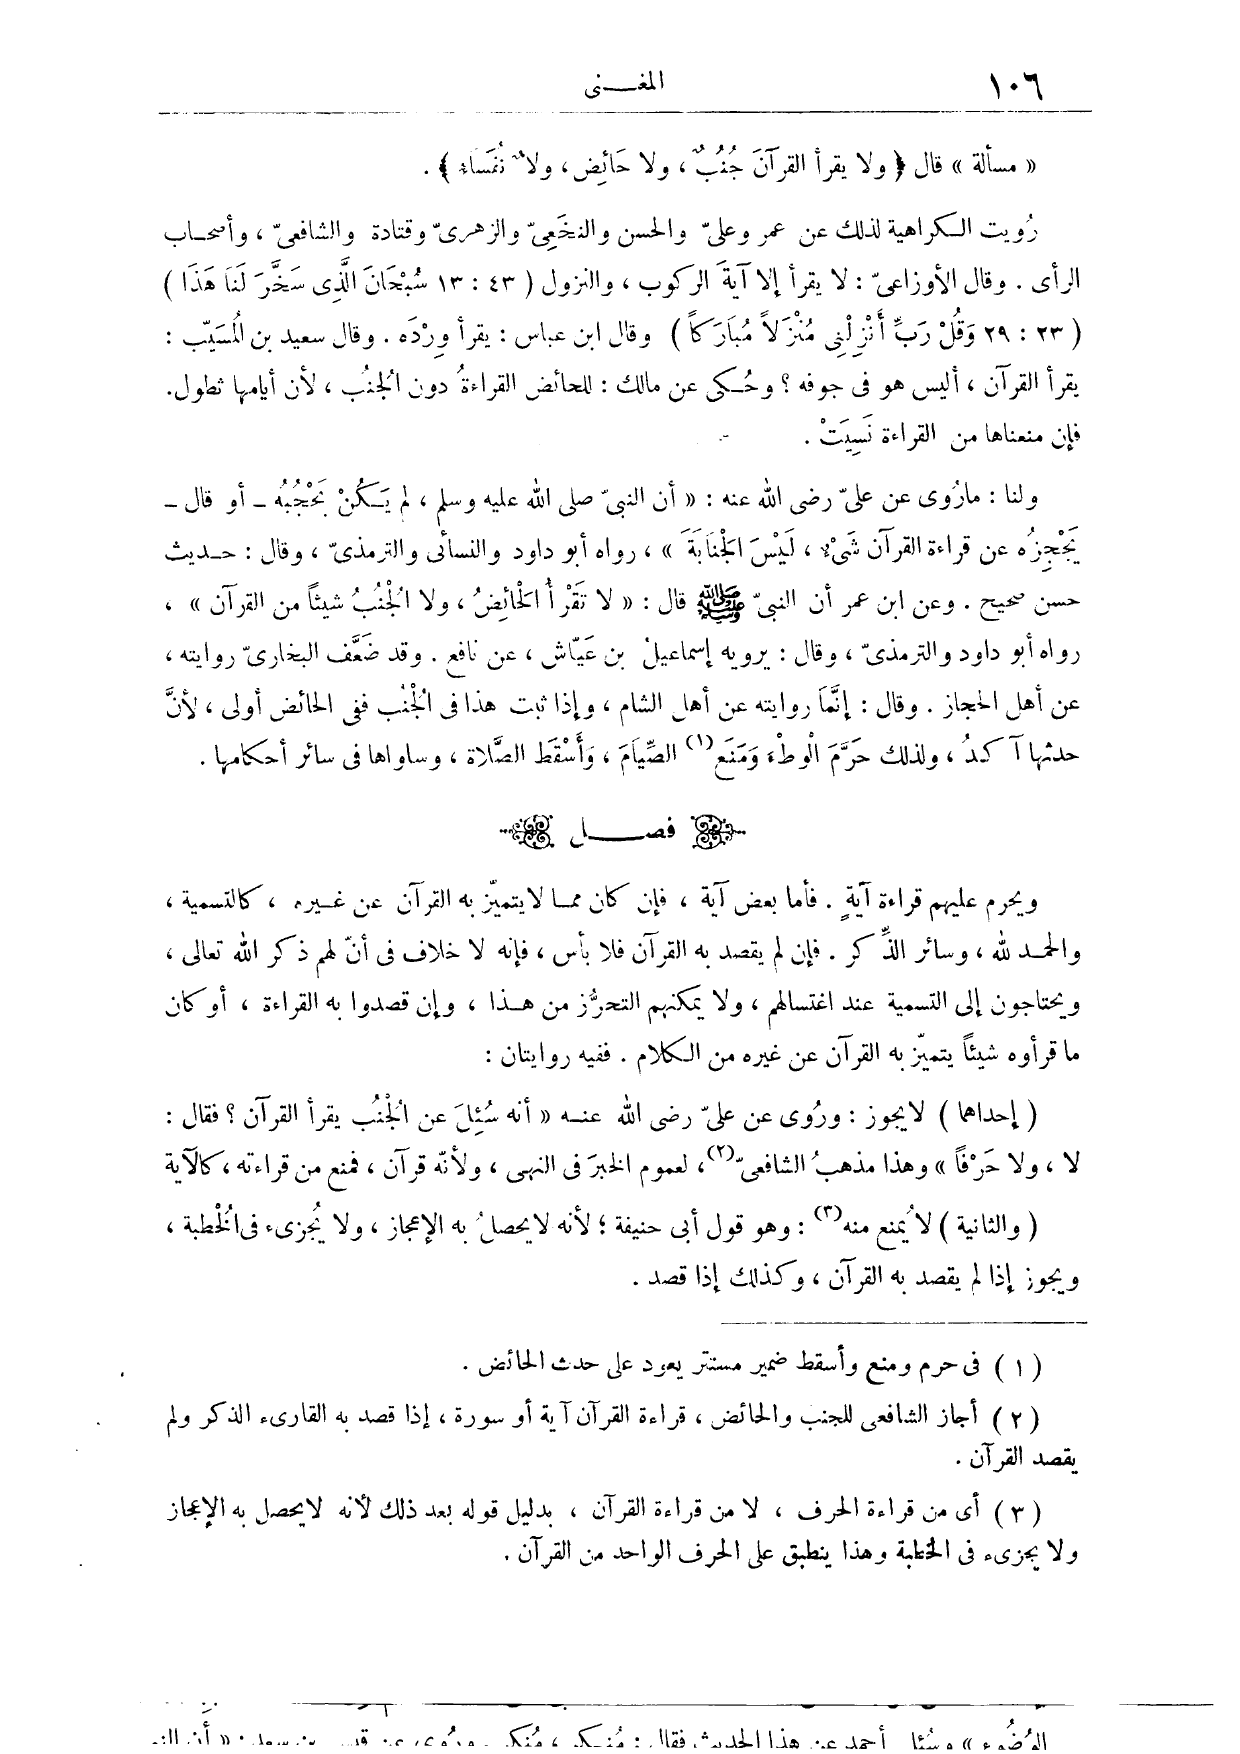 ١٠٦ المغـنى
« مسألة » قال ﴿ ولا يقرأ القرآنَ جُنُبٌ ، ولا حَائِض ، ولا نُفَسَاء ﴾ .
رُويت الكراهية لذلك عن عمر وعلىّ والحسن والنخَعِىّ والزهرىّ وقتادة والشافعىّ ، وأصحاب
الرأى . وقال الأوزاعىّ : لا يقرأ إلا آيةَ الركوب ، والنزول ( ٤٣ : ١٣ سُبْحَانَ الَّذِى سَخَّرَ لَنَا هَذَا )
( ٢٣ : ٢٩ وَقُلْ رَبِّ أَنْزِلْنِى مُنْزَلاً مُبَارَكاً ) وقال ابن عباس : يقرأ وِرْدَه . وقال سعيد بن المُسَيّب :
يقرأ القرآن ، أليس هو فى جوفه ؟ وحُكى عن مالك : للحائض القراءةُ دون الجُنُب ، لأن أيامها تطول.
فإن منعناها من القراءة نَسِيَتْ .
ولنا : مارُوى عن علىّ رضى الله عنه : « أن النبىّ صلى الله عليه وسلم ، لم يَكُنْ يَحْجُبُهُ ـ أو قال ـ
يَحْجِزُه عن قراءة القرآن شَىْء ، لَيْسَ الجْنَابَةَ » ، رواه أبو داود والنسائى والترمذىّ ، وقال : حديث
حسن صحيح . وعن ابن عمر أن النبىّ ﷺ قال : « لا تَقْرَأُ الْحَائِضُ ، ولا الْجُنُبُ شيئاً من القرآن » ،
رواه أبو داود والترمذىّ ، وقال : يرويه إسماعيلُ بن عَيّاش ، عن نافع . وقد ضَعَّف البخارىّ روايته ،
عن أهل الحجاز . وقال : إنَّمَا روايته عن أهل الشام ، وإذا ثبت هذا فى الْجُنُب ففى الحائض أولى ، لأنَّ
حدثها آكدُ ، ولذلك حَرَّمَ الْوطْءَ وَمَنَعَ(١) الصِّيَامَ ، وَأَسْقَطَ الصَّلاة ، وساواها فى سائر أحكامها .
فصـــل
ويحرم عليهم قراءة آيةٍ . فأما بعض آية ، فإن كان مما لايتميّز به القرآن عن غيره ، كالتسمية ،
والحمد لله ، وسائر الذِّكر . فإن لم يقصد به القرآن فلا بأس ، فإنه لا خلاف فى أنّ لهم ذكر الله تعالى ،
ويحتاجون إلى التسمية عند اغتسالهم ، ولا يمكنهم التحرُّز من هذا ، وإن قصدوا به القراءة ، أو كان
ما قرأوه شيئاً يتميّز به القرآن عن غيره من الكلام . ففيه روايتان :
( إحداها ) لايجوز : ورُوى عن علىّ رضى الله عنه « أنه سُئِلَ عن الْجُنُب يقرأ القرآن ؟ فقال :
لا ، ولا حَرْفاً » وهذا مذهبُ الشافعىّ(٢)، لعموم الخبرَ فى النهى ، ولأنّه قرآن ، فمنع من قراءته ، كالآية
( والثانية ) لا يُمنع منه(٣) : وهو قول أبى حنيفة ؛ لأنه لايحصلُ به الإعجاز ، ولا يُجزىء فى الْخُطبة ،
ويجوز إذا لم يقصد به القرآن ، وكذلك إذا قصد .
( ١ ) فى حرم ومنع وأسقط ضمير مستتر يعود على حدث الحائض .
( ٢ ) أجاز الشافعى للجنب والحائض ، قراءة القرآن آية أو سورة ، إذا قصد به القارىء الذكر ولم
يقصد القرآن .
( ٣ ) أى من قراءة الحرف ، لا من قراءة القرآن ، بدليل قوله بعد ذلك لأنه لايحصل به الإعجاز
ولا يجزىء فى الخطبة وهذا ينطبق على الحرف الواحد من القرآن .
الوُضُوء » وسُئل أحمد عن هذا الحديث فقال : مُنكر ، مُنكر . ورُوى عن قيس بن سعد : « أن